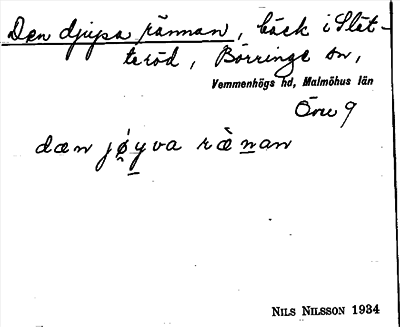 Den djupa rännan, bäck i Slät-
teröd, Börringe sn,
Vemmenhögs hd, Malmöhus län
Övre 9
dæn jøyva rænan
NILS NILSSON 1934